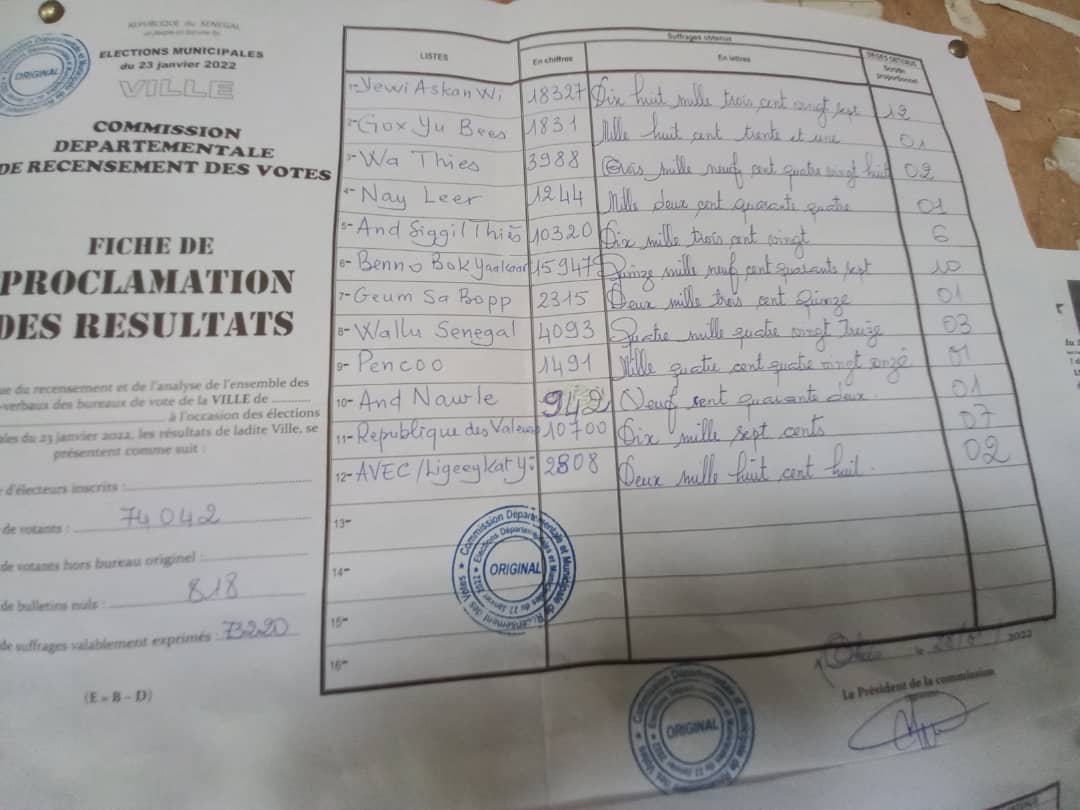 REPUBLIQUE DU SENEGAL
ELECTIONS MUNICIPALES
du 23 janvier 2022
VILLE
COMMISSION
DEPARTEMENTALE
DE RECENSEMENT DES VOTES
FICHE DE
PROCLAMATION
DES RESULTATS
ue du recensement et de l'analyse de l'ensemble des
-verbaux des bureaux de vote de la VILLE de
à l'occasion des élections
ales du 23 janvier 2022, les résultats de ladite Ville, se
présentent comme suit :
d'électeurs inscrits :
de votants : 74042
de votants hors bureau originel :
de bulletins nuls : 818
de suffrages valablement exprimés : 73220
(E = B - D)
LISTES
Suffrages obtenus
En chiffres
En lettres
SIEGES OBTENUS
Scrutin
proportionnel
1- Yewi Askan Wi 18327 Dix huit mille trois cent vingt sept 12
2- Gox Yu Bees 1831 Mille huit cent trente et une 01
3- Wa Thies 3988 Trois mille neuf cent quatre vingt huit 02
4- Nay Leer 1244 Mille deux cent quarante quatre 01
5- And Siggil Thiès 10320 Dix mille trois cent vingt 6
6- Benno Bok Yaakaar 15947 Quinze mille neuf cent quarante sept 10
7- Geum Sa Bopp 2315 Deux mille trois cent Quinze 01
8- Wallu Senegal 4093 Quatre mille quatre vingt Treize 03
9- Pencoo 1491 Mille quatre cent quatre vingt onze 01
10- And Nawle 942 Neuf cent quarante deux 01
11- Republique des Valeurs 10700 Dix mille sept cents 07
12- AVEC/Ligeeykat Yi 2808 Deux mille huit cent huit. 02
13-
14-
15-
16-
Commission Départementale et Municipale de Recensement des Votes
Elections Départementales et Municipales du 23 Janvier 2022
ORIGINAL
ORIGINAL
ORIGINAL
le 2022
Le Président de la commission